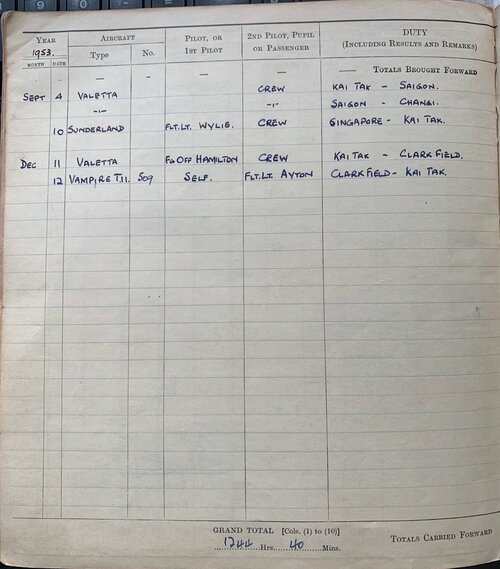 YEAR AIRCRAFT PILOT, OR 2ND PILOT, PUPIL DUTY
1953. Type No. 1ST PILOT OR PASSENGER (INCLUDING RESULTS AND REMARKS)
MONTH DATE
— - — — — TOTALS BROUGHT FORWARD
SEPT 4 VALETTA CREW KAI TAK - SAIGON.
-"- -"- SAIGON - CHANGI.
10 SUNDERLAND FLT.LT. WYLIE. CREW SINGAPORE - KAI TAK.
DEC 11 VALETTA FG OFF HAMILTON CREW KAI TAK - CLARK FIELD.
12 VAMPIRE T.11. 509 SELF. FLT.LT. AYTON CLARK FIELD - KAI TAK.
GRAND TOTAL [Cols. (1) to (10)]
1244 Hrs. 40 Mins.
TOTALS CARRIED FORWARD